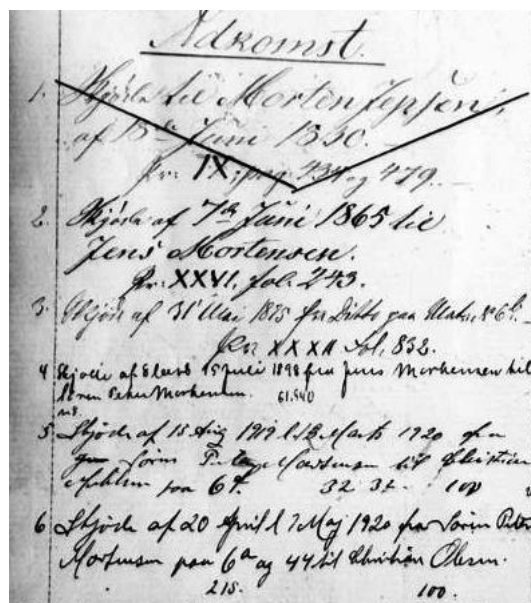 Adkomst.
1. Skjøde til Morten Jepsen,
af 18de Juni 1830.
Pr: IX, pag 434 og 479.
2. Skjøde af 7de Juni 1865 til
Jens Mortensen.
Pr: XXVI. fol. 243.
3. Skjøde af 31 Mai 1875 fra Ditto paa Matr. № 6
Pr: XXXII fol. 832.
4 Skjøde af 15 Juli 1898 fra Jens Mortensen til
Søren Peter Mortensen. 61.540
5 Skjøde af 15 Aug 1919 18 Marts 1920 fra
Søren Peter Mortensen til Christian
6f. 32 32 100
6 Skjøde af 20 April 7 Maj 1920 fra Søren Peter
Mortensen paa 6a og 44 til Christian Olsen
215. 100.